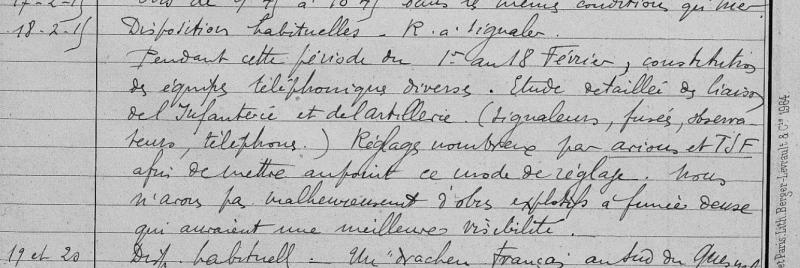 17-2-15 de 9 h à 10 h dans les mêmes conditions qu'hier
18-2-15 Disposition habituelles - R. à signaler.
Pendant cette période du 1er au 18 Février, constitution
des équipes téléphoniques diverses. Etude detaillée des liaisons
de l'Infanterie et de l'artillerie. (signaleurs, fusées, observa-
teurs, téléphone.) Réglages nombreux par avions et TSF
afin de mettre au point ce mode de réglage. Nous
n'avons pas malheureusement d'obus explosifs à fumée dense
qui auraient une meilleures visibilité.
19 et 20 Disp. habituell. Un "drachen" Français au sud du Quesnel
et Paris. Lith. Berger-Levrault & Cie 1984